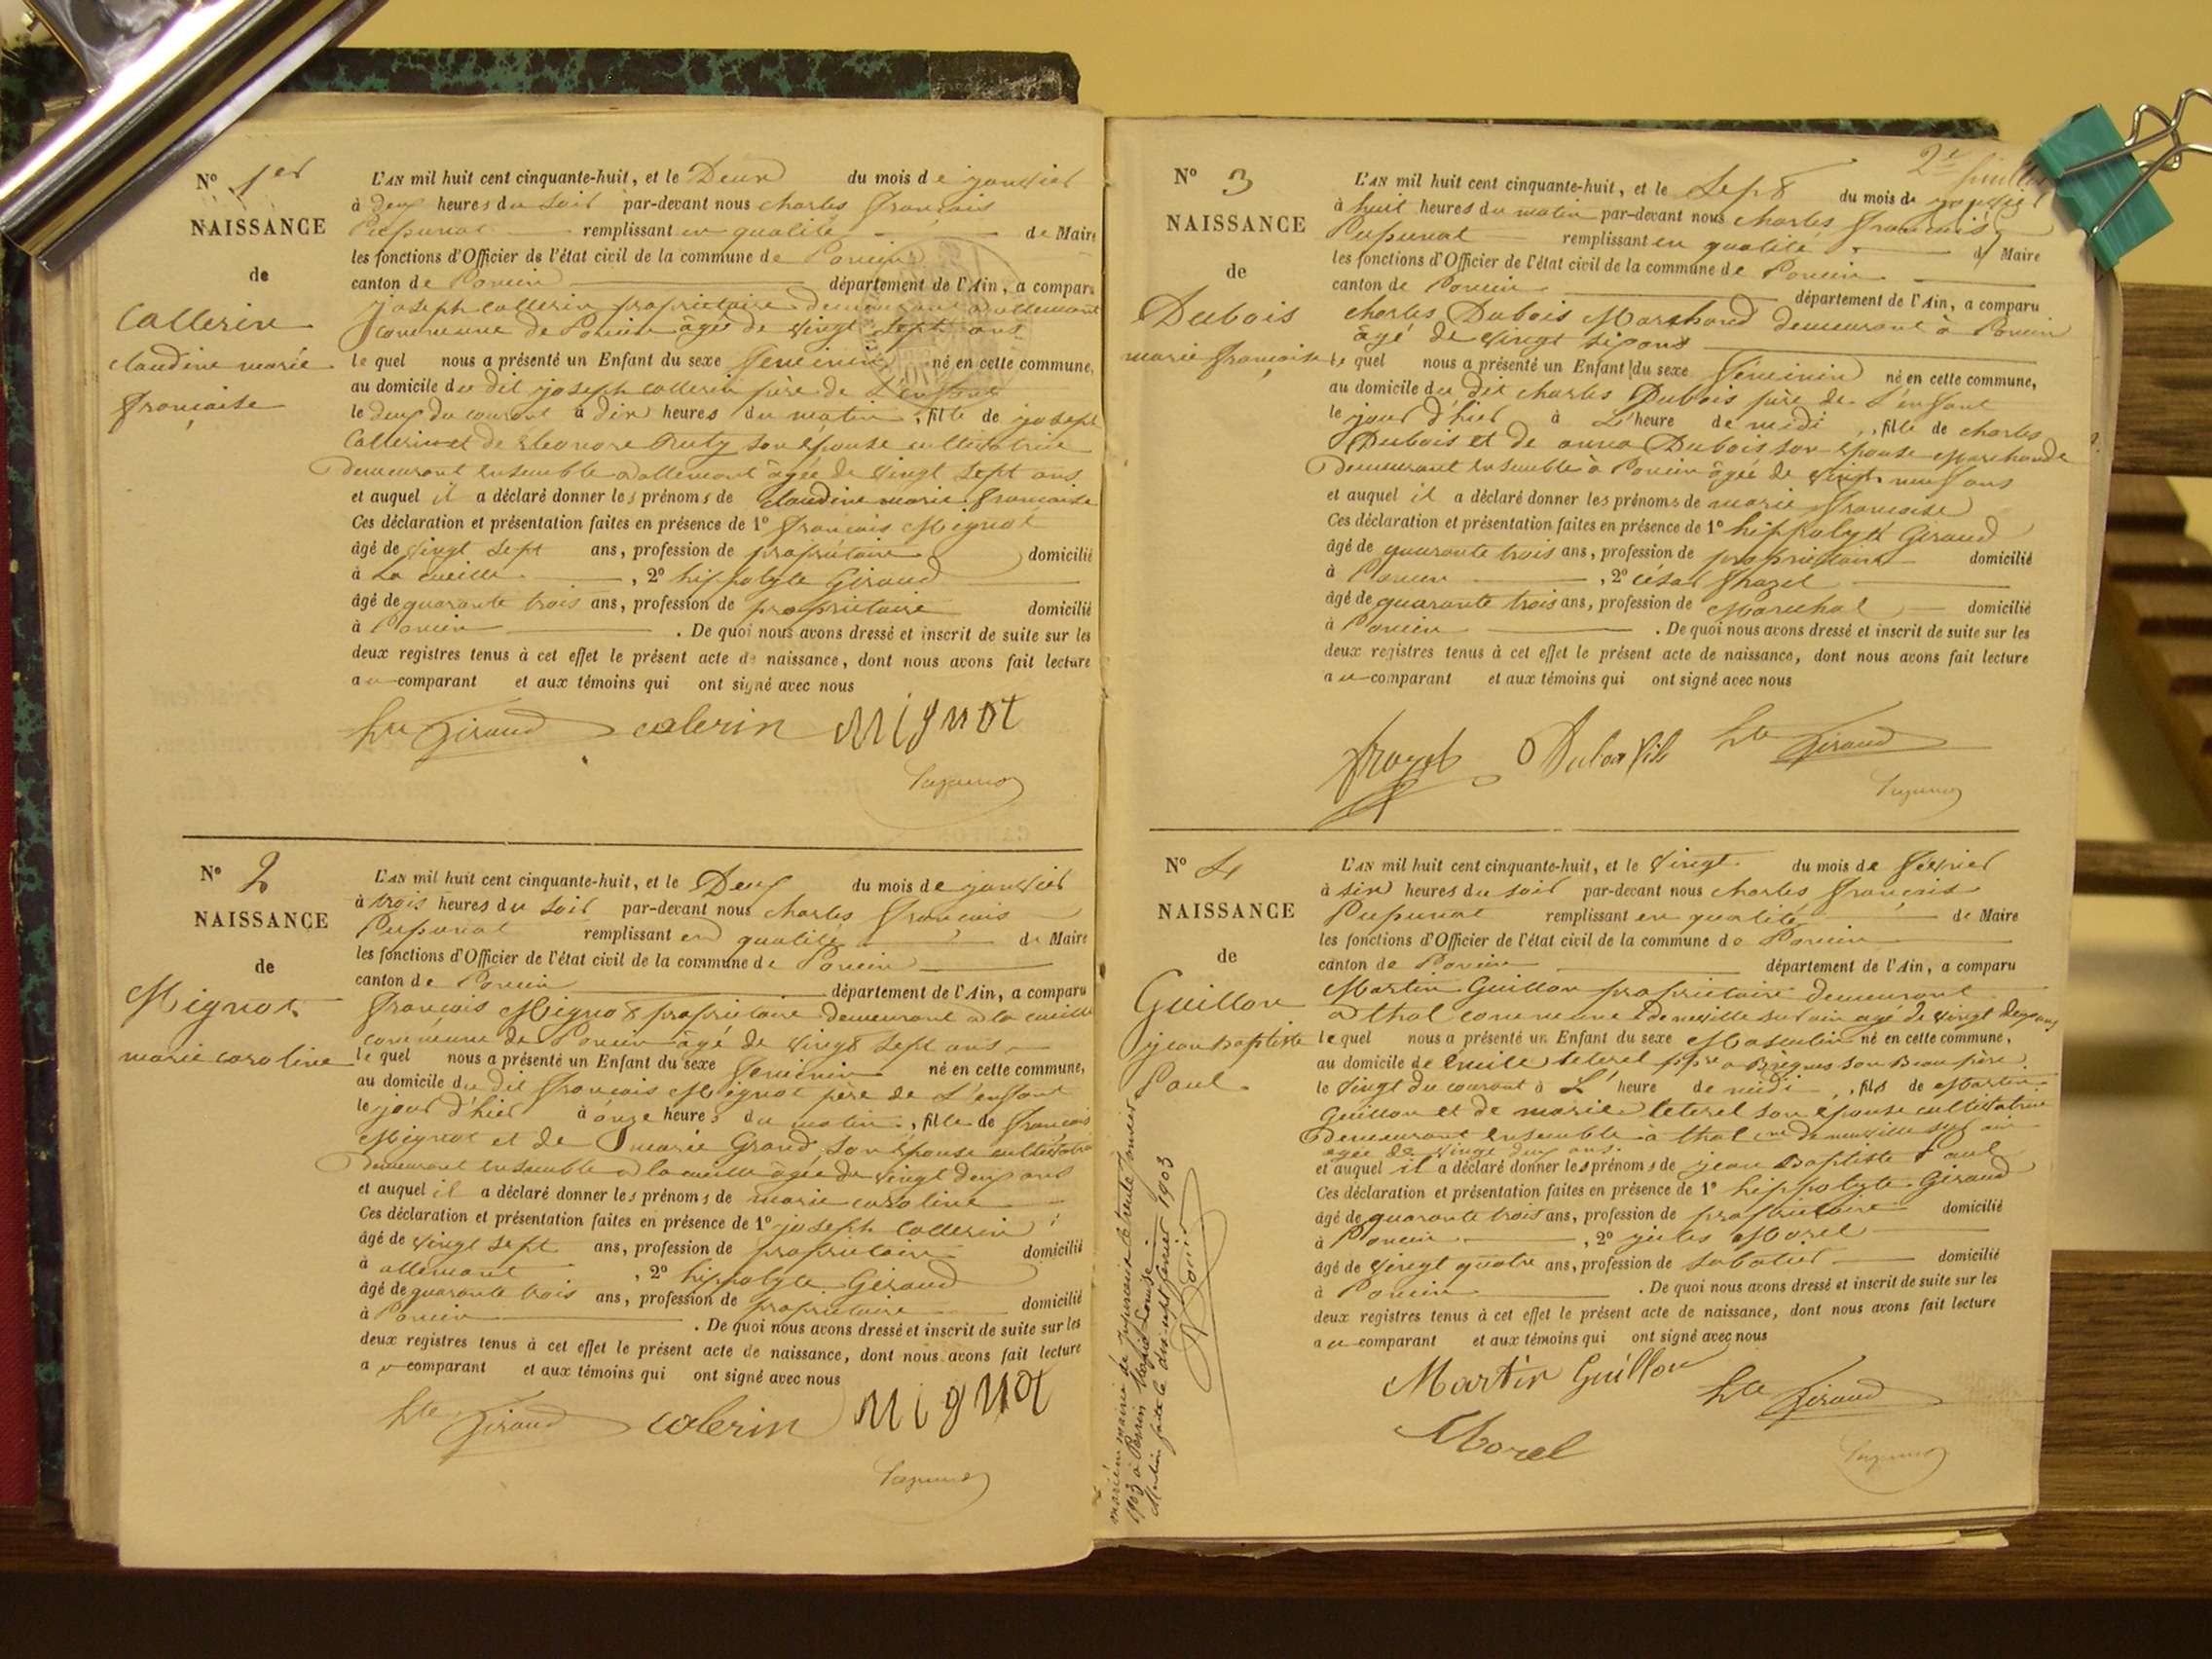 N° 1er
NAISSANCE
de
Collerin
claudine marie
françoise
L'AN mil huit cent cinquante-huit, et le Deux du mois de janvier
à deux heures du soir par-devant nous charles françois
remplissant en qualité de Maire
les fonctions d'Officier de l'état civil de la commune de Poncin
canton de Poncin département de l'Ain, a comparu
joseph Collerin propriétaire demeurant à allement
commune de Poncin âgé de vingt sept ans
le quel nous a présenté un Enfant du sexe féminin né en cette commune,
au domicile du dit joseph Collerin père de L'enfant
le deux du courant à dix heures du matin, fille de joseph
Collerin et de Eléonore son épouse cultivatrice
demeurant ensemble à allement âgée de vingt sept ans
et auquel il a déclaré donner les prénoms de claudine marie françoise
Ces déclaration et présentation faites en présence de 1° françois Mignot
âgé de vingt sept ans, profession de propriétaire domicilié
à La cueille, 2° hippolyte Giraud
âgé de quarante trois ans, profession de propriétaire domicilié
à Poncin. De quoi nous avons dressé et inscrit de suite sur les
deux registres tenus à cet effet le présent acte de naissance, dont nous avons fait lecture
au comparant et aux témoins qui ont signé avec nous
hte Giraud colerin Mignot
N° 2
NAISSANCE
de
Mignot
marie caroline
L'AN mil huit cent cinquante-huit, et le Deux du mois de janvier
à trois heures du soir par-devant nous charles françois
remplissant en qualité de Maire
les fonctions d'Officier de l'état civil de la commune de Poncin
canton de Poncin département de l'Ain, a comparu
françois Mignot propriétaire demeurant à la cueille
commune de Poncin âgé de vingt sept ans
le quel nous a présenté un Enfant du sexe féminin né en cette commune,
au domicile du dit françois Mignot père de L'enfant
le jour d'hier à onze heures du matin, fille de françois
Mignot et de marie Grand son épouse cultivatrice
demeurant ensemble à la cueille âgée de vingt deux ans
et auquel il a déclaré donner les prénoms de marie caroline
Ces déclaration et présentation faites en présence de 1° joseph Collerin
âgé de vingt sept ans, profession de propriétaire domicilié
à allement, 2° hippolyte Giraud
âgé de quarante trois ans, profession de propriétaire domicilié
à Poncin. De quoi nous avons dressé et inscrit de suite sur les
deux registres tenus à cet effet le présent acte de naissance, dont nous avons fait lecture
au comparant et aux témoins qui ont signé avec nous
hte Giraud colerin Mignot
2e feuillet
N° 3
NAISSANCE
de
Dubois
marie françoise
L'AN mil huit cent cinquante-huit, et le Sept du mois de janvier
à huit heures du matin par-devant nous charles françois
remplissant en qualité de Maire
les fonctions d'Officier de l'état civil de la commune de Poncin
canton de Poncin département de l'Ain, a comparu
charles Dubois Marchand demeurant à Poncin
âgé de vingt six ans
le quel nous a présenté un Enfant du sexe féminin né en cette commune,
au domicile du dit charles Dubois père de L'enfant
le jour d'hier à L'heure de midi, fille de charles
Dubois et de anna Dubois son épouse Marchande
demeurant ensemble à Poncin âgée de vingt neuf ans
et auquel il a déclaré donner les prénoms de marie françoise
Ces déclaration et présentation faites en présence de 1° hippolyte Giraud
âgé de quarante trois ans, profession de propriétaire domicilié
à Poncin, 2° césar
âgé de quarante trois ans, profession de Maréchal domicilié
à Poncin. De quoi nous avons dressé et inscrit de suite sur les
deux registres tenus à cet effet le présent acte de naissance, dont nous avons fait lecture
au comparant et aux témoins qui ont signé avec nous
Dubois fils hte Giraud
N° 4
NAISSANCE
de
Guillon
jean Baptiste
Paul
L'AN mil huit cent cinquante-huit, et le vingt du mois de février
à six heures du soir par-devant nous charles françois
remplissant en qualité de Maire
les fonctions d'Officier de l'état civil de la commune de Poncin
canton de Poncin département de l'Ain, a comparu
Martin Guillon propriétaire demeurant
à thol commune de neuville sur ain âgé de vingt deux ans
le quel nous a présenté un Enfant du sexe Masculin né en cette commune,
au domicile de son Beau père
le vingt du courant à L'heure de midi, fils de Martin
Guillon et de marie son épouse cultivatrice
demeurant ensemble à thol cne de neuville sur ain
agée de vingt deux ans.
et auquel il a déclaré donner les prénoms de jean Baptiste Paul
Ces déclaration et présentation faites en présence de 1° hippolyte Giraud
âgé de quarante trois ans, profession de propriétaire domicilié
à Poncin, 2° jules Morel
âgé de vingt quatre ans, profession de sabotier domicilié
à Poncin. De quoi nous avons dressé et inscrit de suite sur les
deux registres tenus à cet effet le présent acte de naissance, dont nous avons fait lecture
au comparant et aux témoins qui ont signé avec nous
Martin Guillon hte Giraud
Morel
marié en mairie de le trente janvier
1903 à Perrin Marie Louise.
Mention faite le dix sept février 1903